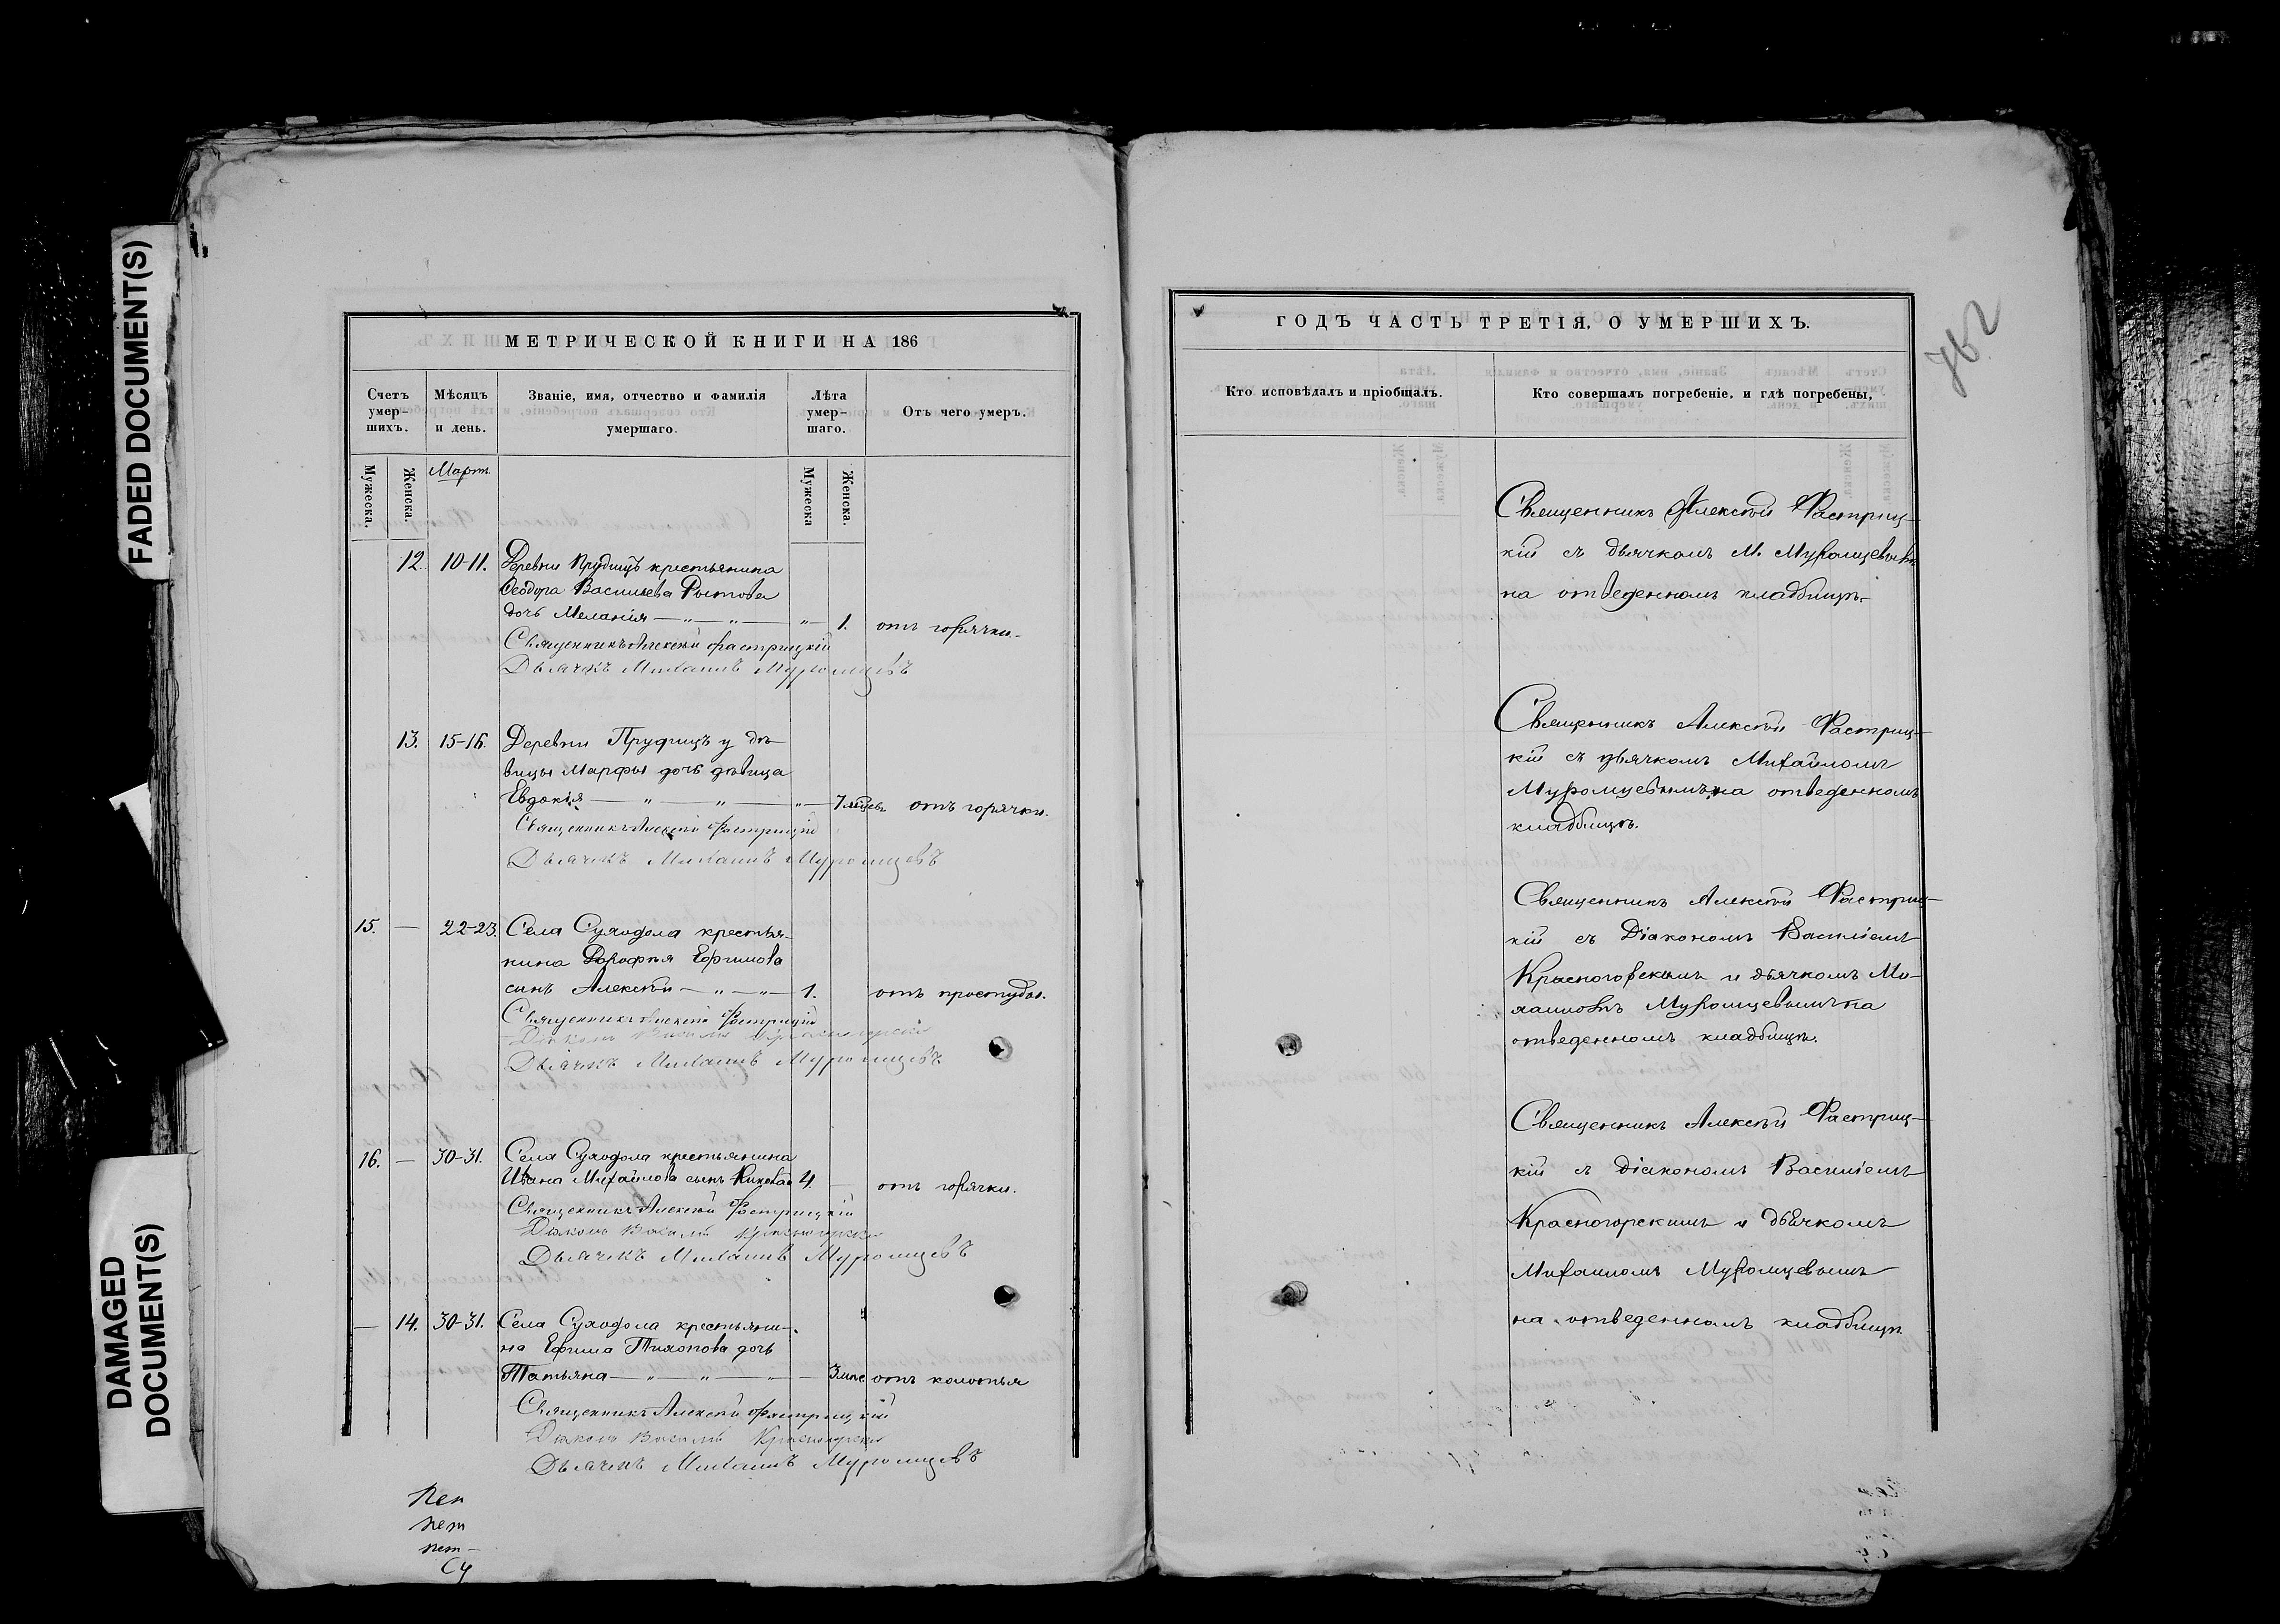 FADED DOCUMENT(S)
DAMAGED
DOCUMENT(S)
МЕТРИЧЕСКОЙ КНИГИ НА 186
Счетъ умер-шихъ.
Мѣсяцъ и день.
Званіе, имя, отчество и фамилія умершаго.
Лѣта умер-шаго.
Отъ чего умеръ.
Мужеска.
Женска.
Мартъ
Мужеска
Женска.
12. 10-11. Деревни Прудищъ крестьянина
Ѳеодора Васильева
дочь Меланія — „ — „ — „ — 1. отъ горячки.
Священникъ Алексѣй Фастрицкій
Дьячекъ Михаилъ Муромцевъ
13. 15-16. Деревни Прудищъ у дѣ-
вицы Марфы дочь дѣвица
Евдокія — „ — „ — „ — 7 мѣсяц. отъ горячки.
Священникъ Алексѣй Фастрицкій
Дьячекъ Михаилъ Муромцевъ
15. — 22-23. Села Суходола крестья-
нина Дорофея Ефимова
сынъ Алексѣй — „ — „ — 1. отъ простуды.
Священникъ Алексѣй Фастрицкій
Діаконъ Василій Красногорскій
Дьячекъ Михаилъ Муромцевъ
16. — 30-31. Села Суходола крестьянина
Ивана Михайлова сынъ 4. — отъ горячки.
Священникъ Алексѣй Фастрицкій
Діаконъ Василій Красногорскій
Дьячекъ Михаилъ Муромцевъ
— 14. 30-31. Села Суходола крестьяни-
на Ефима Тихонова дочь
Татьяна — „ — „ — „ — 3 отъ колотья
Священникъ Алексѣй Фастрицкій
Діаконъ Василій Красногорскій
Дьячекъ Михаилъ Муромцевъ
ГОДЪ ЧАСТЬ ТРЕТІЯ, О УМЕРШИХЪ.
Кто исповѣдалъ и пріобщалъ.
Кто совершалъ погребеніе, и гдѣ погребены,
Священникъ Алексѣй Фастриц-
кій съ дьячкомъ М. Муромцевымъ
на отведенномъ кладбищѣ.
Священникъ Алексѣй Фастриц-
кій съ дьячкомъ Михаиломъ
Муромцевымъ на отведенномъ
кладбищѣ.
Священникъ Алексѣй Фастриц-
кій съ Діакономъ Василіемъ
Красногорскимъ и дьячкомъ Ми-
хаиломъ Муромцевымъ на
отведенномъ кладбищѣ.
Священникъ Алексѣй Фастриц-
кій съ діакономъ Василіемъ
Красногорскимъ и дьячкомъ
Михаиломъ Муромцевымъ
на отведенномъ кладбищѣ